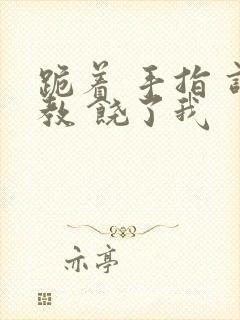 跪着 手指 
教 饶了我
亦亭